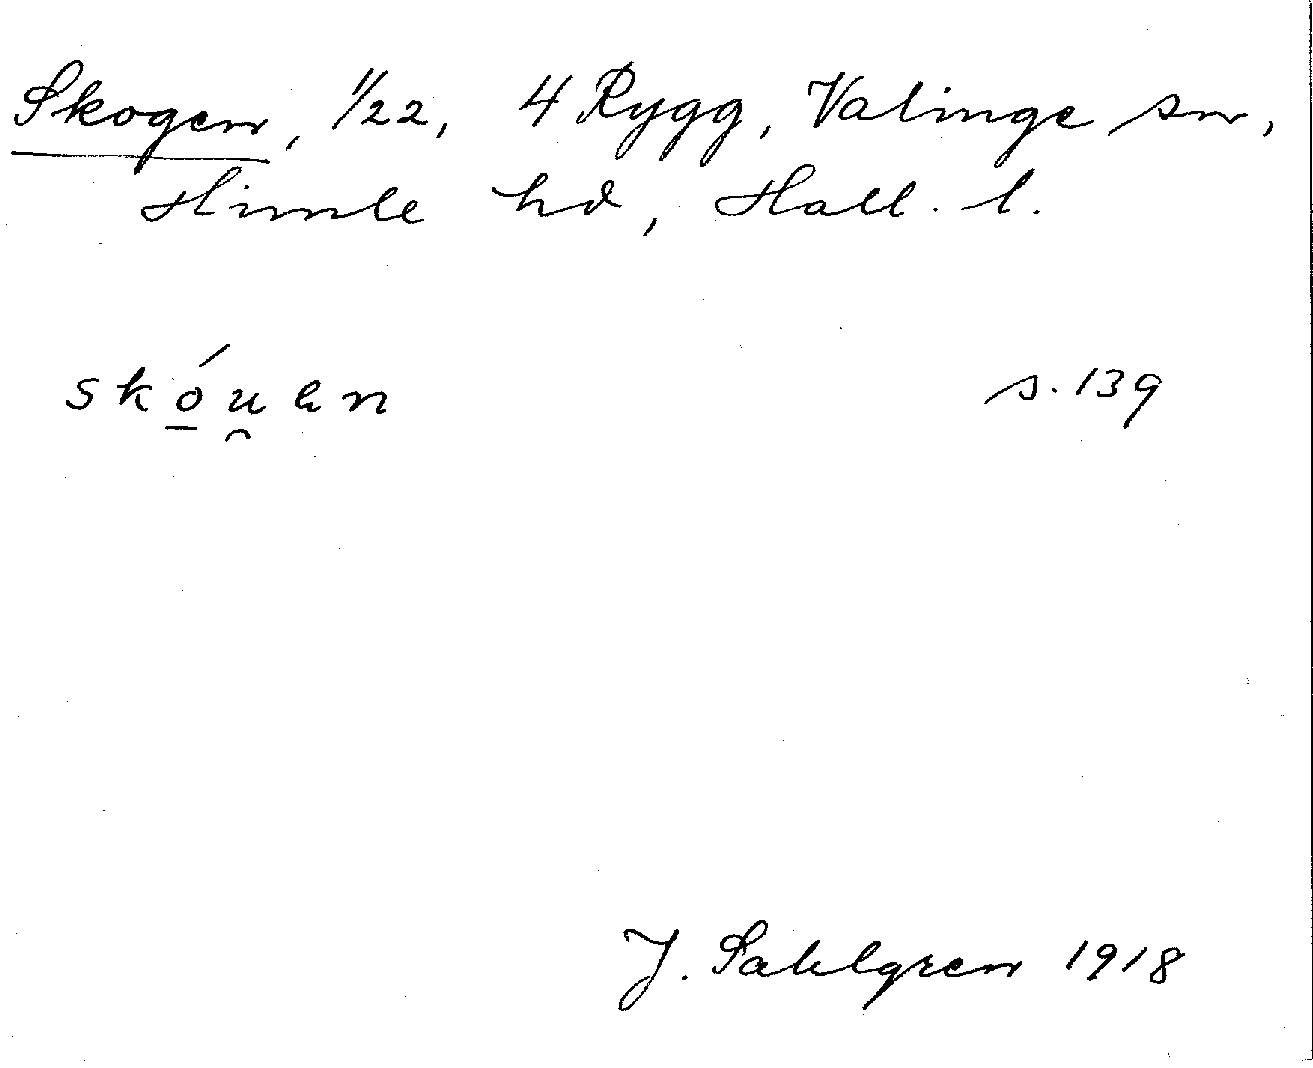 Skogen, 1/22, 4 Rygg, Valinge sn,
Himle hd, Hall. l.
skó̲u̯en s. 139
J. Sahlgren 1918